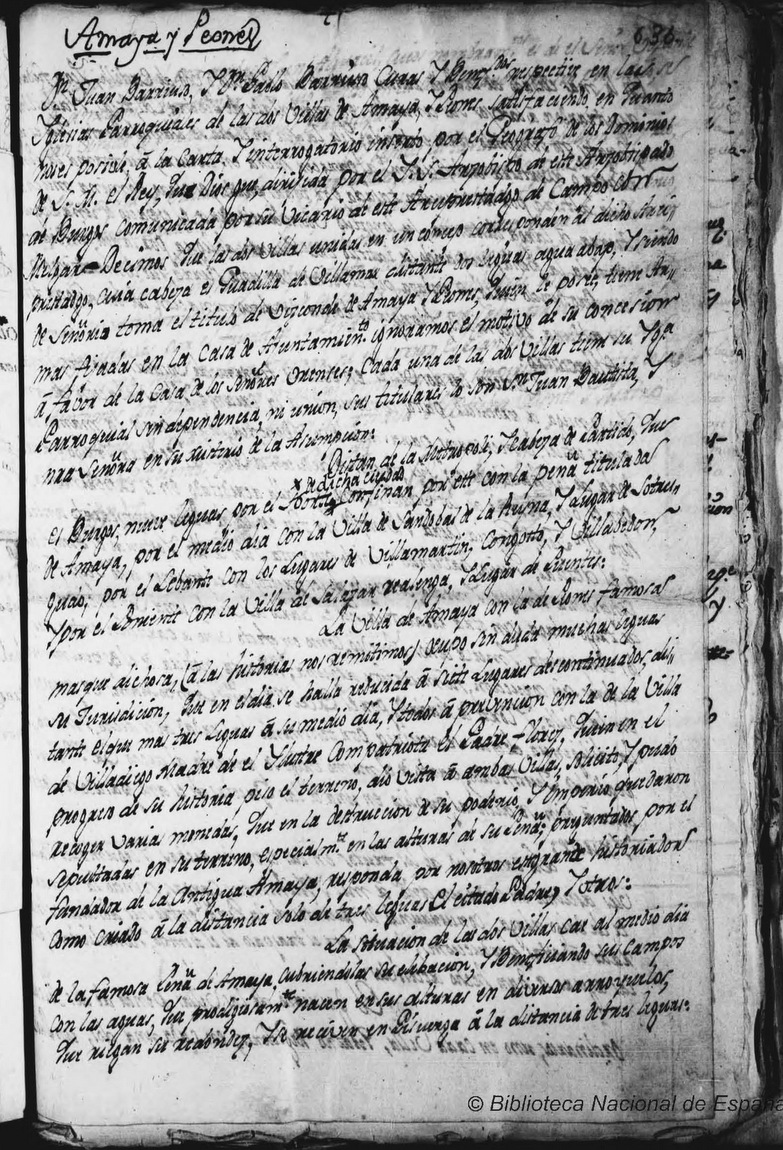 Amaya y Peones
636.
Dn. Juan Barriuso, Y Dn. Pablo Barriuso Curas Y Benefdos. respective en las
Iglesias Parroquiales de las dos Villas de Amaya, Y Peones satisfaciendo, en quanto
nos es posible, â la Carta, Y interrogatorio inserto, por el Geografo de los Dominios
de S. M. el Rey, que Dios gue, dirijida por el Y. S. Arzobispo de este Arzobispado
de Burgos comunicada por su Vicario de este Arciprestadgo de Campo con
Melgar = Decimos que las dos Villas unidas en un concejo corresponden âl dicho Arci-
prestadgo, cuia cabeza es Guadilla de Villamar distante dos leguas agua abajo, Y siendo
de Señorio toma el titulo de Vizconde de Amaya Y Peones, quien le posee, tiene Ar-
mas fijadas en la Casa de Ayuntamiento ignoramos el motivo de su concesion
â fabor de la Casa de los Señores Orenses; Cada una de las dos Villas tiene su Yga
Parroquial sin dependencia, ni union, sus titulares lo son Sn. Juan Bautista, Y
nra Señora en su misterio de la Asumpcion:
Distan de la Metropoli, Y cabeza de Partido, que
x dicha ciudad
es Burgos, nueve leguas por el Norte confinan por este con la peña titulada
de Amaya, por el medio dia con la Villa de Sandobal de la Reyna, Y Lugar de Sotres-
gudo, por el Lebante con los Lugares de Villamartin, Congosto, Y Villabedon,
Y por el Poniente con la Villa de Salazar de Amaya, Y Lugar de Puentes:
La Villa de Amaya con la de Peones famosa
mas que dichosa, (â las historias nos remitimos) ocupo sin duda muchas leguas
su Jurisdicion, que en el dia se halla reducida â siete Lugares descontinuados, dis-
tante el que mas tres Leguas â su medio dia, Y todos â prevencion con la de la Villa
de Villadiego Madre de el Ylustre Compatriota el Padre Florez, quien en el
progreso de su historia piso el terreno, dio vista â ambas Villas, solicitó, Y pudo
recoger varias monedas, que en la destruccion de su poderio, Y Imperio, quedaron
sepultadas en su terreno, especialmte. en las alturas de su Peña; preguntados por el
fundador de la Antigua Amaya, responda por nosotros este grande historiador
como criado â la distancia solo de tres leguas el citado Padre, Y otros:
La situacion de las dos Villas cae al medio dia
de la famosa Peña de Amaya, cubriendolas su elebacion, Y Beneficiando sus campos
con las aguas, que prodigiosamte. nacen en sus alturas en diversos arroyuelos,
que riegan su redondez, Y se recivir en Pisuerga â la distancia de tres leguas:
© Biblioteca Nacional de España